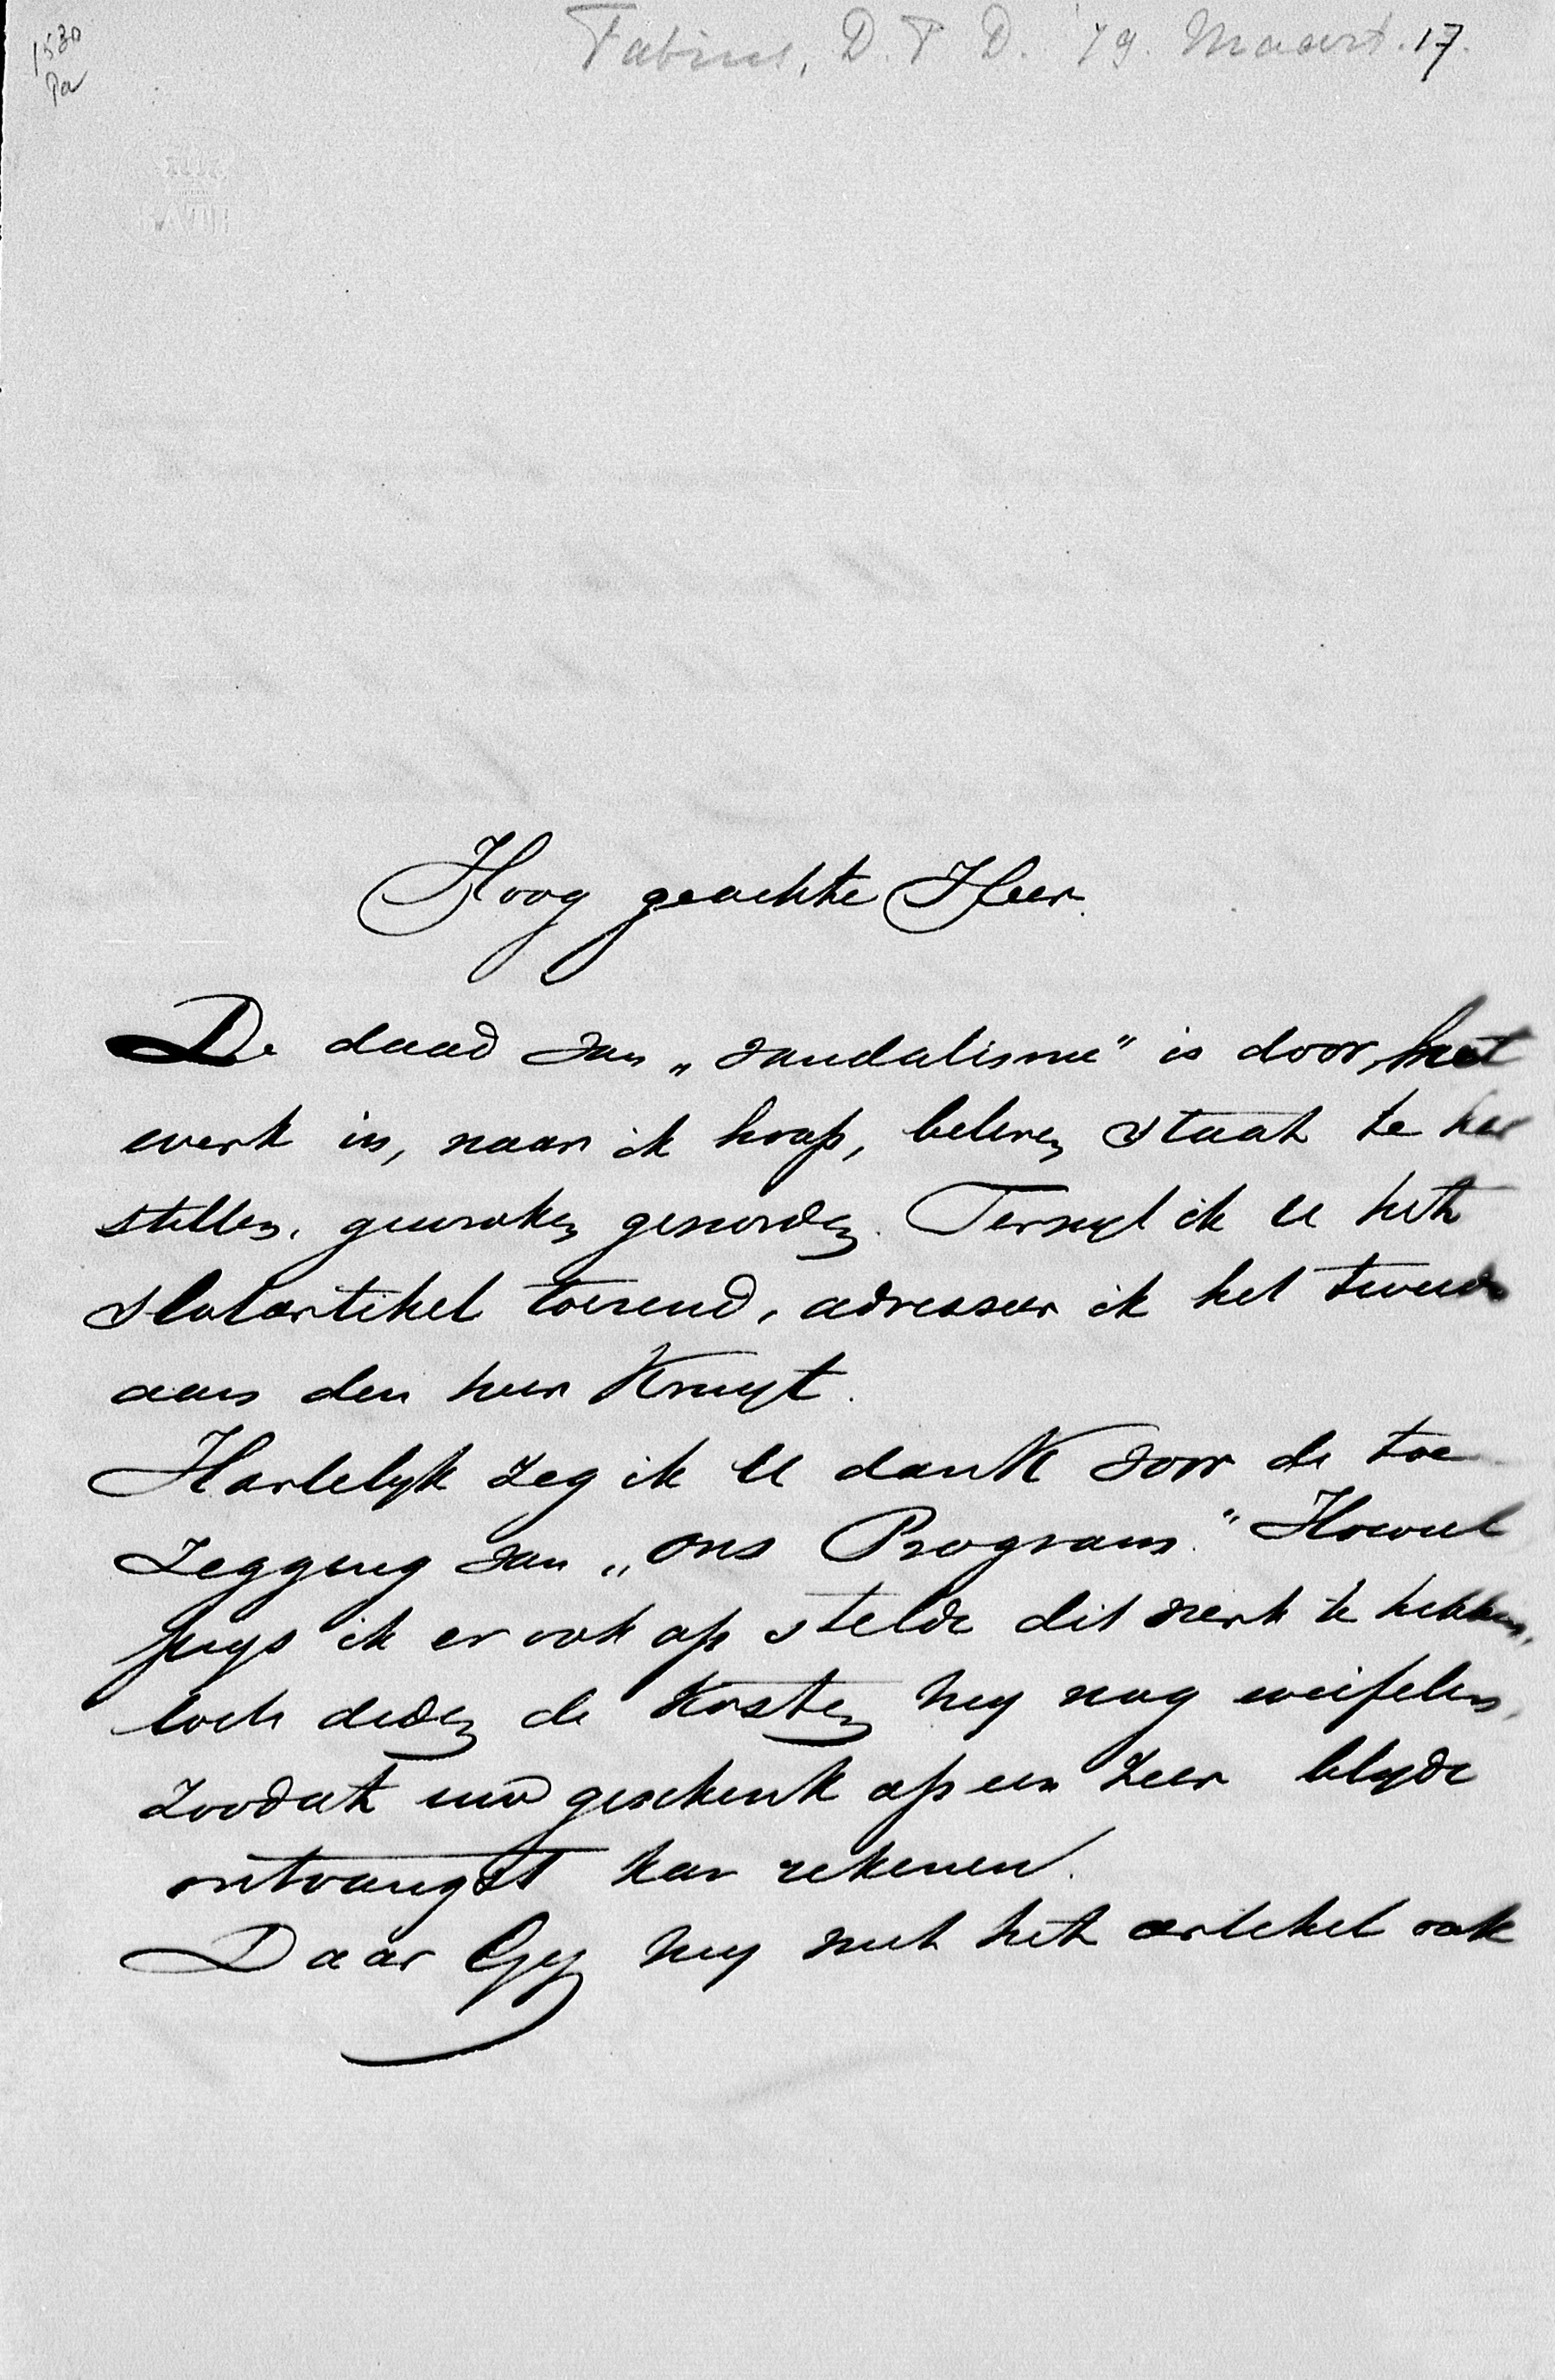 1530
Pa
Fabius, D. P. D. '79. Maart. 17.
Hoog geachte Heer.
De daad van „vandalisme" is door, het
werk in, naar ik hoop, beteren staat te her
stellen, gewroken geworden. Terwijl ik U het
slotartikel toezend, adresseer ik het tweede
aan den heer Kruyt.
Hartelijk zeg ik U dank voor de toe
zegging van „ons Program." Hoewel
prijs ik er ook op stelde dit werk te hebben,
toch deden de kosten mij nog weifelen,
zoodat uw geschenk op een zeer blijde
ontvangst kan rekenen.
Daar Gij mij met het artikel ook